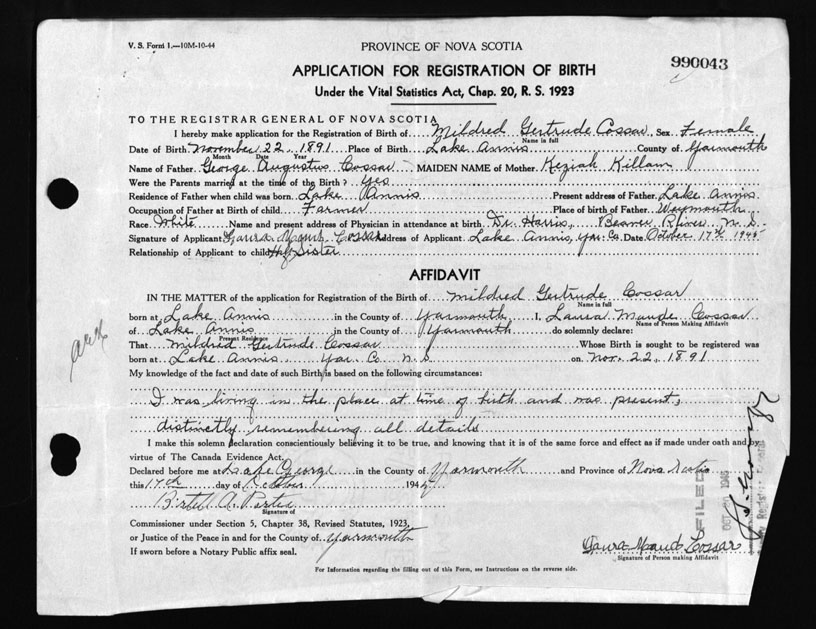 V. S. Form 1.—10M-10-44
PROVINCE OF NOVA SCOTIA
990043
APPLICATION FOR REGISTRATION OF BIRTH
Under the Vital Statistics Act, Chap. 20, R. S. 1923
TO THE REGISTRAR GENERAL OF NOVA SCOTIA
I hereby make application for the Registration of Birth of Mildred Gertrude Cossar, Sex Female
Name in full
Date of Birth November 22, 1891 Place of Birth Lake Annis County of Yarmouth
Month Date Year
Name of Father George Augustus Cossar MAIDEN NAME of Mother Keziah Killam
Were the Parents married at the time of the Birth? yes
Residence of Father when child was born Lake Annis Present address of Father Lake Annis
Occupation of Father at Birth of child Farmer Place of birth of Father Weymouth
Race White Name and present address of Physician in attendance at birth Dr. Harris, Beaver River N.S.
Signature of Applicant Laura Maud Cossar Address of Applicant Lake Annis, Yar. Co. Date October 17th 1945
Relationship of Applicant to child Half Sister
AFFIDAVIT
IN THE MATTER of the application for Registration of the Birth of Mildred Gertrude Cossar
Name in full
born at Lake Annis in the County of Yarmouth I, Laura Maude Cossar
Name of Person Making Affidavit
of Lake Annis in the County of Yarmouth do solemnly declare:
Present Residence
That Mildred Gertrude Cossar Whose Birth is sought to be registered was
born at Lake Annis Yar. Co. N.S. on Nov. 22, 1891
My knowledge of the fact and date of such Birth is based on the following circumstances:
I was living in the place at time of birth and was present,
distinctly remembering all details
I make this solemn declaration conscientiously believing it to be true, and knowing that it is of the same force and effect as if made under oath and by
virtue of The Canada Evidence Act.
Declared before me at Lake George in the County of Yarmouth and Province of Nova Scotia
this 17th day of October 194
Signature of
Commissioner under Section 5, Chapter 38, Revised Statutes, 1923,
or Justice of the Peace in and for the County of Yarmouth
If sworn before a Notary Public affix seal.
FILED
OCT 1945
Laura Maud Cossar
Signature of Person making Affidavit
For Information regarding the filling out of this Form, see Instructions on the reverse side.